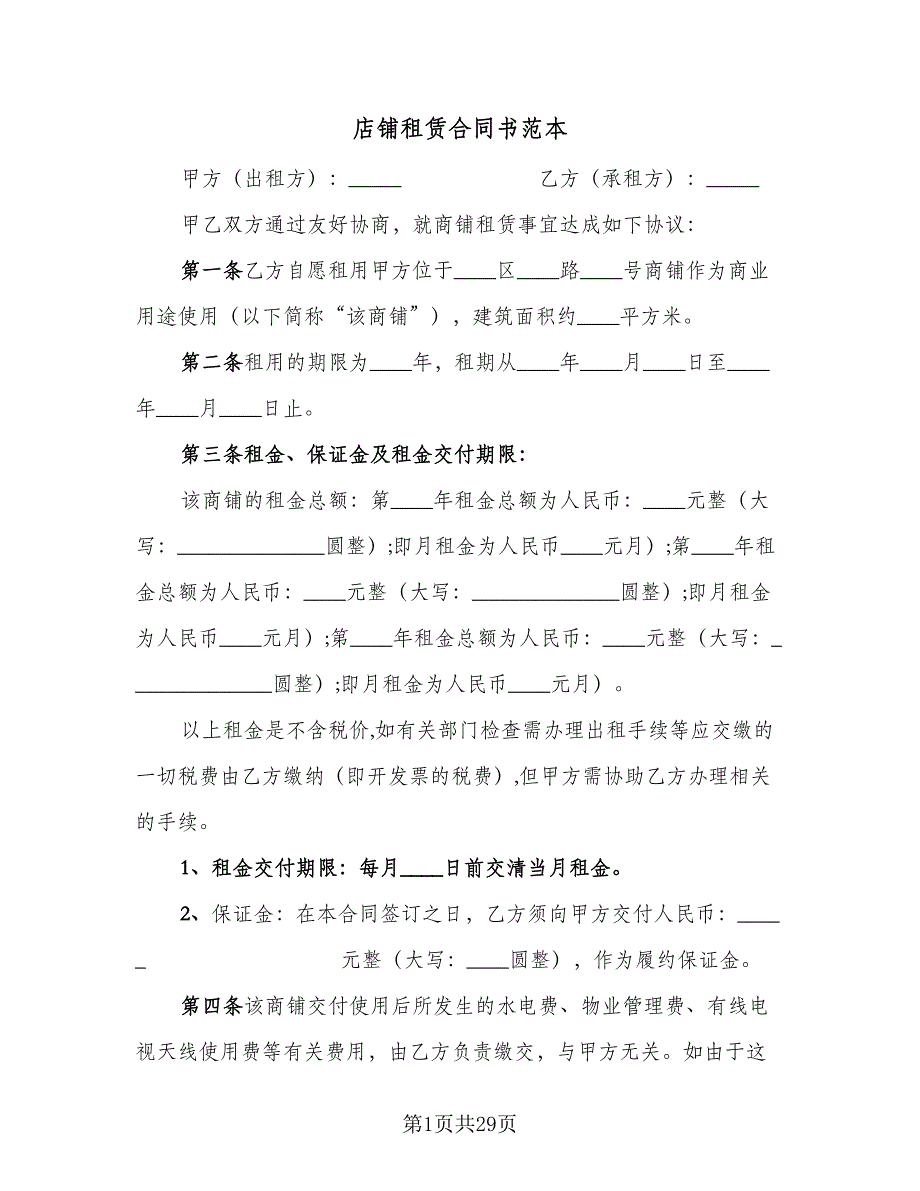 店铺租赁合同书范本
甲方（出租方）：_____ 乙方（承租方）：_____
甲乙双方通过友好协商，就商铺租赁事宜达成如下协议：
第一条乙方自愿租用甲方位于____区____路____号商铺作为商业
用途使用（以下简称“该商铺”），建筑面积约____平方米。
第二条租用的期限为____年，租期从____年____月____日至____
年____月____日止。
第三条租金、保证金及租金交付期限：
该商铺的租金总额：第____年租金总额为人民币：____元整（大
写：______________圆整）;即月租金为人民币____元月）;第____年租
金总额为人民币：____元整（大写：______________圆整）;即月租金
为人民币____元月）;第____年租金总额为人民币：____元整（大写：_
_____________圆整）;即月租金为人民币____元月）。
以上租金是不含税价,如有关部门检查需办理出租手续等应交缴的
一切税费由乙方缴纳（即开发票的税费）,但甲方需协助乙方办理相关
的手续。
1、租金交付期限：每月____日前交清当月租金。
2、保证金：在本合同签订之日，乙方须向甲方交付人民币：____
_ 元整（大写：____圆整），作为履约保证金。
第四条该商铺交付使用后所发生的水电费、物业管理费、有线电
视天线使用费等有关费用，由乙方负责缴交，与甲方无关。如由于这
第1页共29页